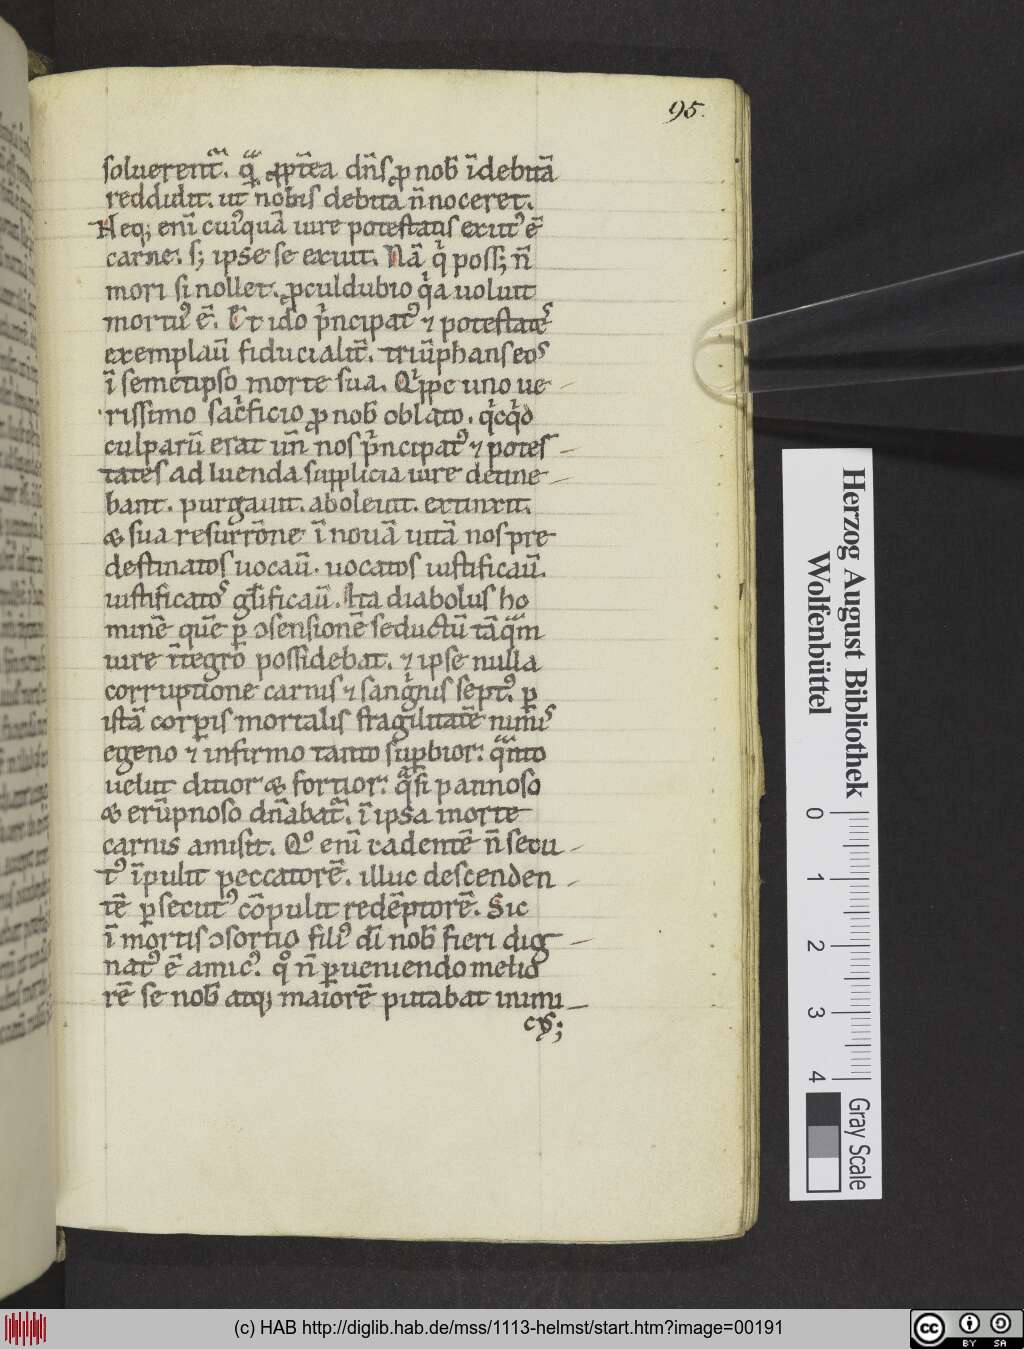 95.
soluerent᷑. q̃ ꝓpt̃ea dñs ꝓ nob̃ ĩdebitã
reddidit. ut nobis debita ñ noceret.
Neq; eni̅ cuiꝰquã iure potestatis exutꝰ ẽ
carne. s; ipse se exuit. Nã qͥ poss; ñ
mori si nollet. ꝓculdubio qͥa uoluit
mortuꝰ ẽ. Et id̃o pͥncipatꝰ ⁊ potestateˢ
exemplaũ fiducialit̃. triũphans eoˢ
ĩ semetipso morte sua. Qͥppe uno ue
rissimo sacͥficio ꝓ nob̃ oblato. qͥcqͥd
culparũ erat uñ nos pͥncipatꝰ ⁊ potes
tates ad luenda supplicia iure detine
bant. purgauit. aboleuit. extinxit.
& sua resurrõne ĩ nouã uitã nos pre
destinatos uocaũ. uocatos iustificaũ.
iustificatoˢ gl̃ificaũ. Ita diabolus ho
minẽ quẽ ꝑ ↄsensionẽ seductũ tãqᷓm
iure ĩtegrõ possidebat. ⁊ ipse nulla
corruptione carnis ⁊ sangͥnis septꝰ. ꝑ
istã corꝑis mortalis fragilitatẽ nimiˢ
egeno ⁊ infirmo tanto suꝑbior: qᷓnto
uelut ditior & fortior: qᷓsi pannoso
& erũpnoso dñabat᷑. ĩ ipsa morte
carnis amisit. Qͦ eni̅ cadentẽ ñ secu
tꝰ ĩpulit peccatorẽ. illuc descenden
tẽ ꝑsecutꝰ cõpulit redẽptorẽ. Sic
ĩ mortis ↄsortio filiꝰ dĩ nob̃ fieri dig
natꝰ ẽ amicꝰ. qͦ ñ ꝑueniendo melio
rẽ se nob̃ atq; maiorẽ putabat inimi
cꝰ;
Herzog August Bibliothek
Wolfenbüttel
0 1 2 3 4
Gray Scale
(c) HAB http://diglib.hab.de/mss/1113-helmst/start.htm?image=00191
cc BY SA